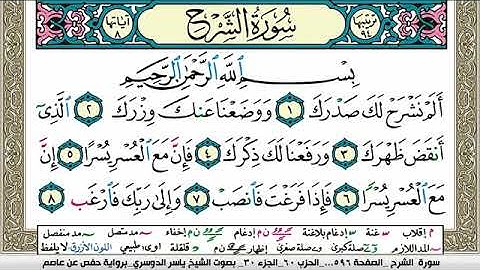 ترتيبها ٩٤ سُورَةُ الشَّرْحِ آياتها ٨
بِسْمِ اللَّهِ الرَّحْمَٰنِ الرَّحِيمِ
أَلَمْ نَشْرَحْ لَكَ صَدْرَكَ ١ وَوَضَعْنَا عَنكَ وِزْرَكَ ٢ الَّذِي
أَنقَضَ ظَهْرَكَ ٣ وَرَفَعْنَا لَكَ ذِكْرَكَ ٤ فَإِنَّ مَعَ الْعُسْرِ يُسْرًا ٥ إِنَّ
مَعَ الْعُسْرِ يُسْرًا ٦ فَإِذَا فَرَغْتَ فَانصَبْ ٧ وَإِلَىٰ رَبِّكَ فَارْغَب ٨
م إقلاب غنة إدغام بلاغنة ن م إدغام ن م إخفاء مد متصل مد منفصل
المد اللازم صلة كبرى وصلة صغرى إظهار ن م قلقلة طبيعي اللون الأزرق لا يلفظ
سورة الشرح _الصفحة ٥٩٦... الحزب ٦٠_الجزء ٣٠_ بصوت الشيخ ياسر الدوسري_برواية حفص عن عاصم